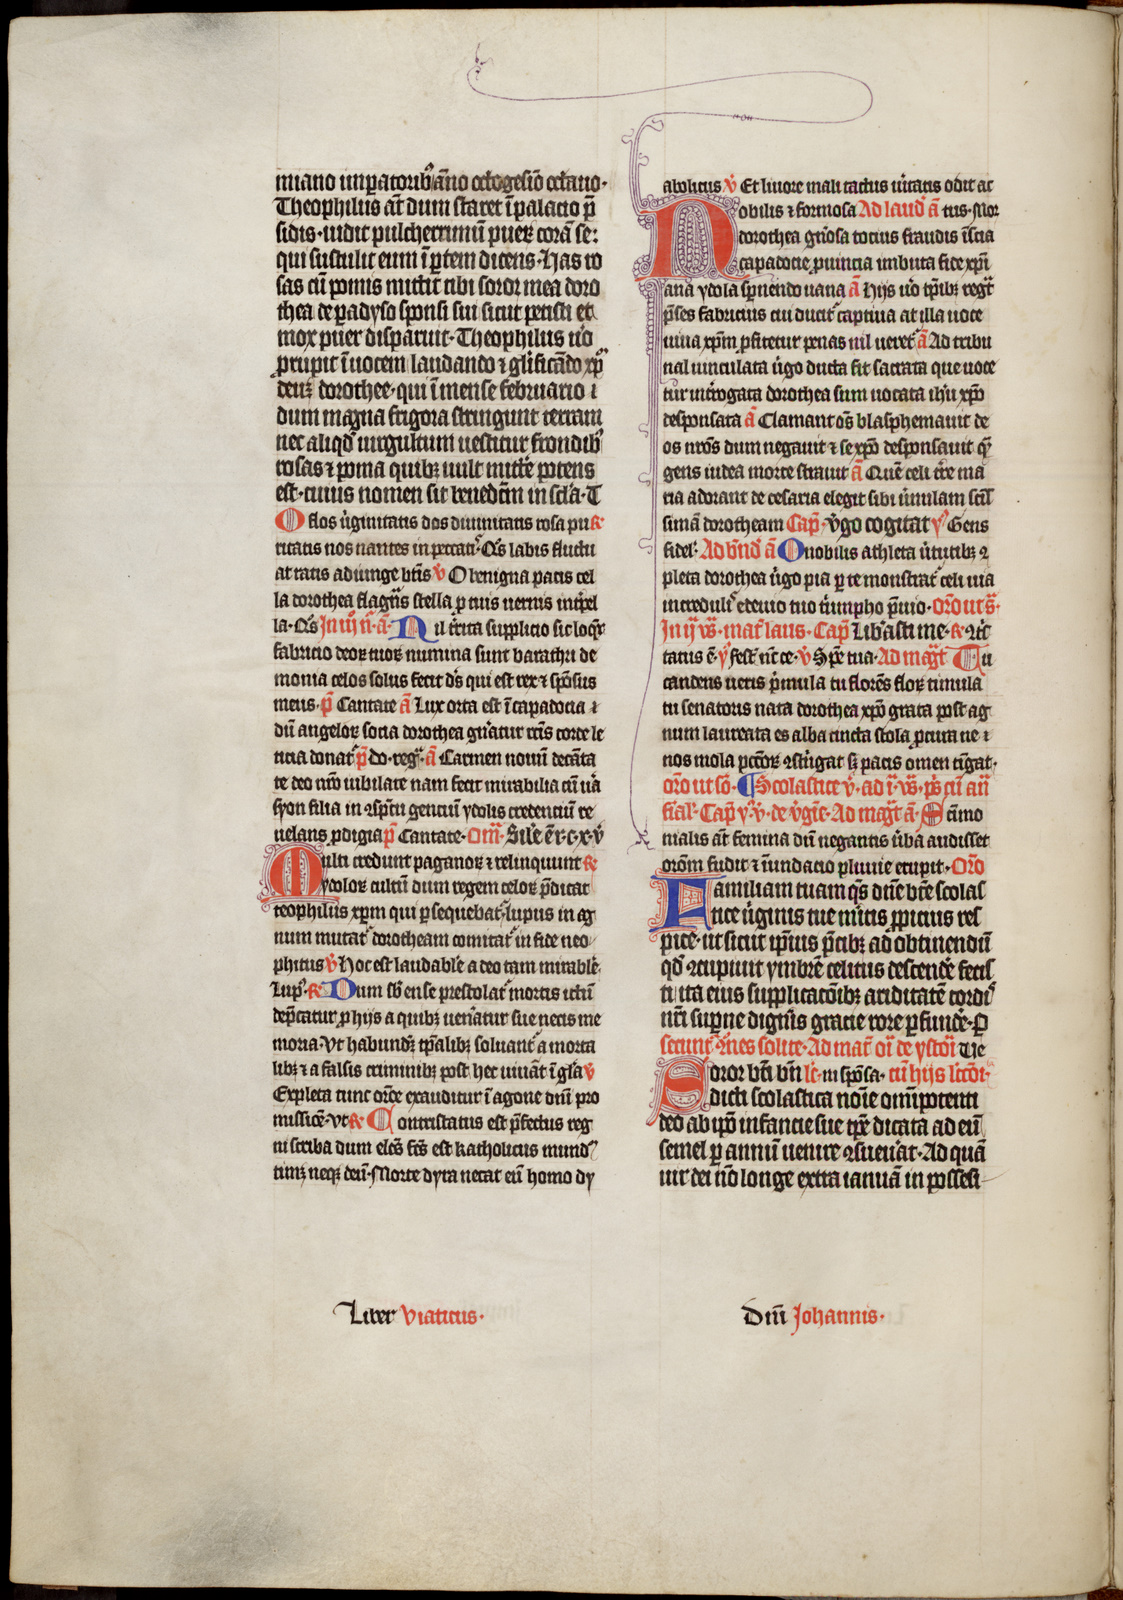 miano imꝑatoribꝰ āno octogesiō octauo·
Theophilus at̄ dum staret ī palacio p̄
sidis· uidit pulcherrimū pueꝝ corā se:
qui sustulit eum ī ꝑtem dicens· Has ro
sas cū pomis mittit tibi soror mea doro
thea de ꝑadyso sponsi sui sicut petisti et
mox puer disparuit· Theophilus uͦo
ꝓrupit ī uocem laudando ⁊ glīficādo xp̄
deuꝫ dorothee· qui ī mense februario ·i·
dum magna frigora stringunt terram
nec aliqd̄ uirgultum uestitur frondibꝰ
rosas ⁊ poma quibꝫ uult mitt̄e potens
est· cuius nomen sit benedc̄m in scl̄a· T
O flos v̓ginitatis dos diuinitatis rosa pu ℟
ritatis nos nantes in peccatiꝭ Qs̄ labis fluctu
at ratis adiunge bt̄is ℣ O benigna pacis cel
la dorothea flagrās stella ꝑ tuis uernis int̓pel
la· Qs̄ In iij n̄· a· Nil t̓rita supplicio sic loqr̄
fabricio deoꝝ tuoꝝ numina sunt barathri de
monia celos solus fecit ds̄ qui est rex ⁊ spōsus
meus· p̄ Cantate ā Lux orta est ī capadocia ·i·
dū angeloꝝ socia dorothea gn̓atur
ticia donat᷑ p̄ do· reg᷑· ā Carmen nouū decāta
te deo nr̄o iubilate nam fecit mirabilia cū uā
syon filia in ꝯspc̄tu gencium ydolis credentiū re
uelans ꝓdigia p̄ Cantate· Om̄· Sil̓e ēr· c· x· v̓
Multi credunt paganoꝝ ⁊ relinquunt ℟
ydoloꝝ cultū dum regem celoꝝ p̄dicat
teophilus xp̄m qui ꝑsequebat᷑ lupus in ag
num mutat᷑ dorotheam comitat᷑ in fide neo
phitus ℣ Hoc est laudabile a deo tam mirabile·
Lupꝰ· ℟ Dum sb̄ ense prestolat᷑ mortis ictū
dep̄catur ꝓ hijs a quibꝫ uen̓atur sue necis me
moria· Vt habundꝫ tp̄alibꝫ soluant᷑ a morta
libꝫ ⁊ a falsis criminibꝫ post hec uiuāt ī gl̄a ℣
Expleta tunc orōe exauditur ī agone dn̄i pro
missiōe· vt ℟ Contristatus est p̄fectus reg
ni scriba dum elēs fc̄s est katholicus mund᷑
timꝫ neqꝫ deū· Morte dyra necat eū homo dy
abolicus ℣ Et liuore mali tactus v̓itatis odit ac
Nobilis ⁊ formosa Ad laud̄ ā tus· Mor
dorothea gn̓osa tocius fraudis īscia
capadocie ꝓuincia imbuta fide xp̄i
ana ydola sp̓nendo uana ā Hijs uͦo tp̄ibꝫ regͭ
p̄ses fabricius cui ducit᷑ captiua at illa uoce
uiua xp̄m ꝓfitetur penas nil ueret᷑ ā Ad tribu
nal uinculata v̓go ducta fit sacrata que uoce
tur int̓rogata dorothea sum uocata ih̄u xp̄o
desponsata ā Clamant oēs blasphemauit de
os nr̄os dum negauit ⁊ se xp̄o desponsauit qͣ
gens iudea morte strauit ā Quē celi t̓re ma
ria adorant de cesaria elegit sibi v̓nulam scīs
simā dorotheam Cap̄· v̓go cogitat ℣ Gens
fidel᷑· Ad bn̄d̄ ā O nobilis athleta v̓tutibꝫ ⁊
pleta dorothea v̓go pia ꝑ te monstrat᷑ celi uia
incredulis eternio tuo t̓umpho p̄uio· Orō ut sͣ·
In ij vͦ· mat̄ laus· Cap̄ Libasti me· ℟ ⁊ct̄
tatus ē· ℣ fest n̄t ce· ℣ Spē tua· Ad magt̄ Tu
candens ueris p̓mula tu florēs floꝝ timula
tu senatoris nata dorothea xp̄o grata post ag
num laureata es alba cincta stola ꝓcura ne ·i·
nos mola pctōꝝ ꝯst̓gat sꝫ pacis omen t̓gat·
orō ut sͦ· Scolastice v̓· ad i· vͦ· ps̄ cū an̄
fial᷑· Cap̄ ℣· v̓· de v̓gīe· Ad magt̄ ā· Scīmo
nialis at̄ femina dū negantis v̓ba audisset
orōm fudit ⁊ īundacio pluuie erupit· Orō
Familiam tuam qs̄ dn̄e btē scolas
tice v̓ginis tue m̓itis ꝓpicius res
pice· ut sicut ip̄ius p̄cibꝫ ad obtinendū
qd̄ ꝯcupiuit ymbrē celitus descend̓e fecis
ti· ita eius supplicacōibꝫ ariditatē cordiꝭ
nr̄i sup̓ne dignis gracie rore ꝑfund̓e· P
secunt᷑ om̄es solite· Ad mat̄ oī de ystoī· Lc̄
Soror bt̄i bn̄i lc̄· in spōsa· cū hijs lctōi·
dicti scolastica noīe om̄ipotenti
deo ab ip̄o infantie sue tp̄e dicata ad eū
semel ꝑ annū uenire ꝯsueuat· Ad quā
uir dei nō longe extra ianuā in possesi
Liber Viaticus·
Dn̄i Johannis·